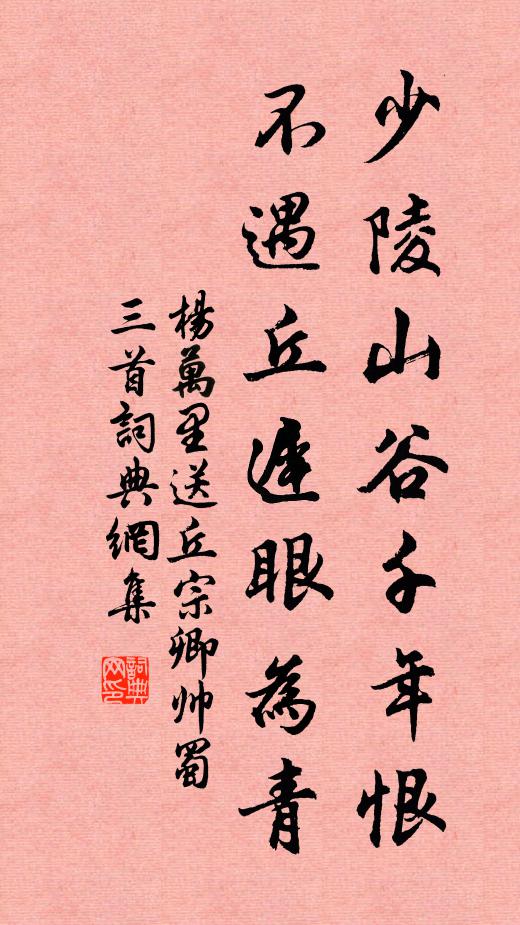 少陵山谷千年恨
不遇丘遲眼為青
楊萬里送丘宗卿帅蜀
三首詞典網集
詞典网印